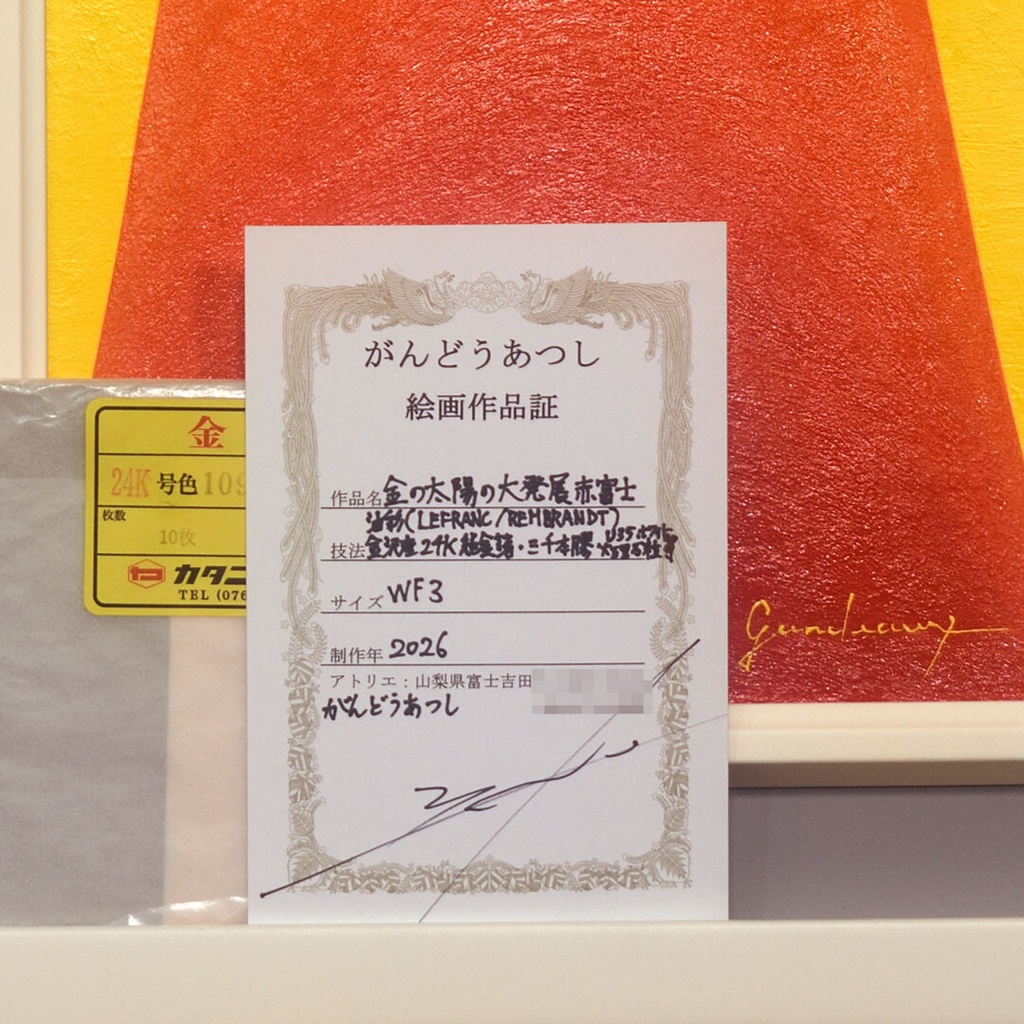 がんどうあつし
絵画作品証
作品名 金の太陽の大発展赤富士
油彩(LEFRANC/REMBRANDT)
技法 金沢産24K純金箔・三千本膠
サイズ WF3
制作年 2026
アトリエ：山梨県富士吉田
がんどうあつし
金
24K 号色 109
枚数
10枚
カタニ
TEL (076